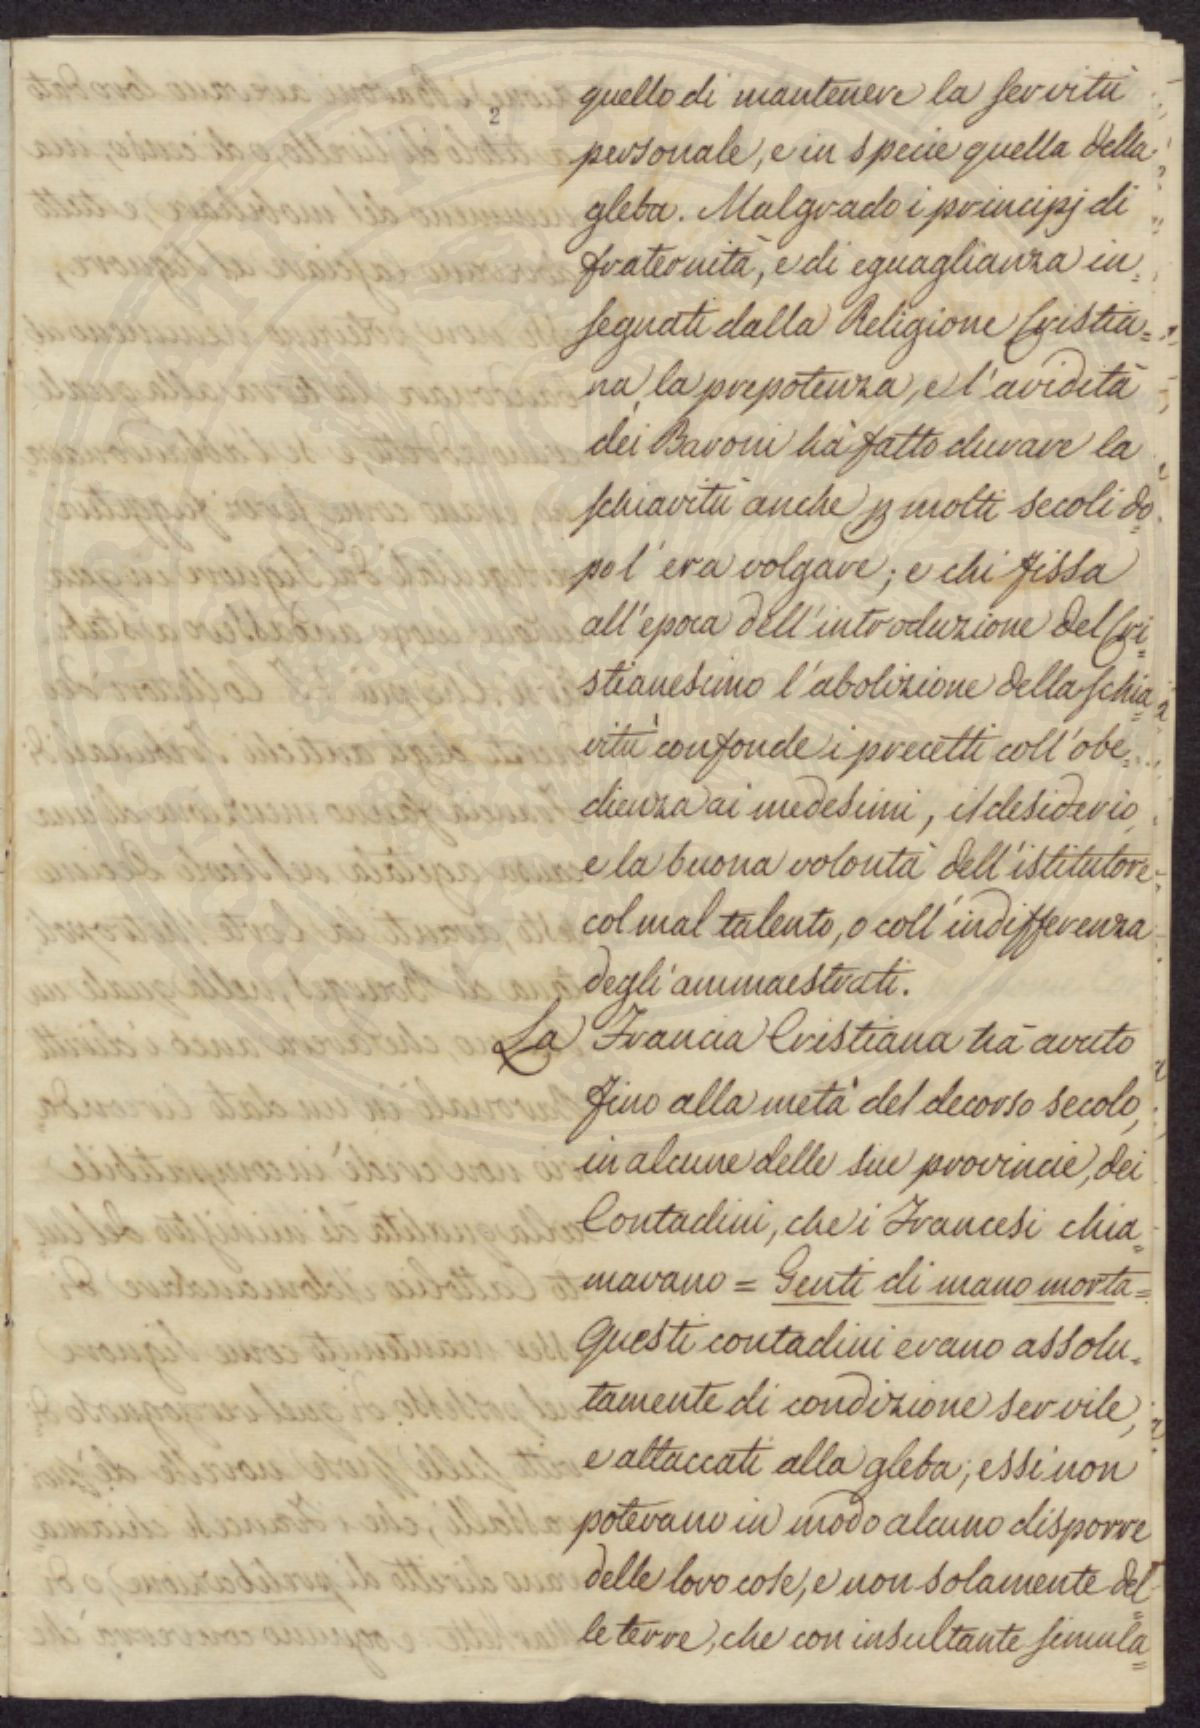 2
quello di mantenere la servitù
personale, e in specie quella della
gleba. Malgrado i principj di
fraternità, e di eguaglianza in=
segnati dalla Religione Cristia=
na, la prepotenza, e l'avidità
dei Baroni hà fatto durare la
schiavitù anche p molti secoli do=
po l'era volgare; e chi fissa
all'epoca dell'introduzione del Cri=
stianesimo l'abolizione della schia=
vitù confonde i precetti coll'obe=
dienza ai medesimi, il desiderio,
e la buona volontà dell'istitutore
col mal talento, o coll'indifferenza
degli ammaestrati.
La Francia Cristiana hà avuto
fino alla metà del decorso secolo,
in alcune delle sue provincie, dei
Contadini, che i Francesi chia=
mavano = Genti di mano morta=
Questi contadini erano assolu=
tamente di condizione servile,
e attaccati alla gleba; essi non
potevano in modo alcuno disporre
delle loro cose, e non solamente del=
le terre, che con insultante simula=